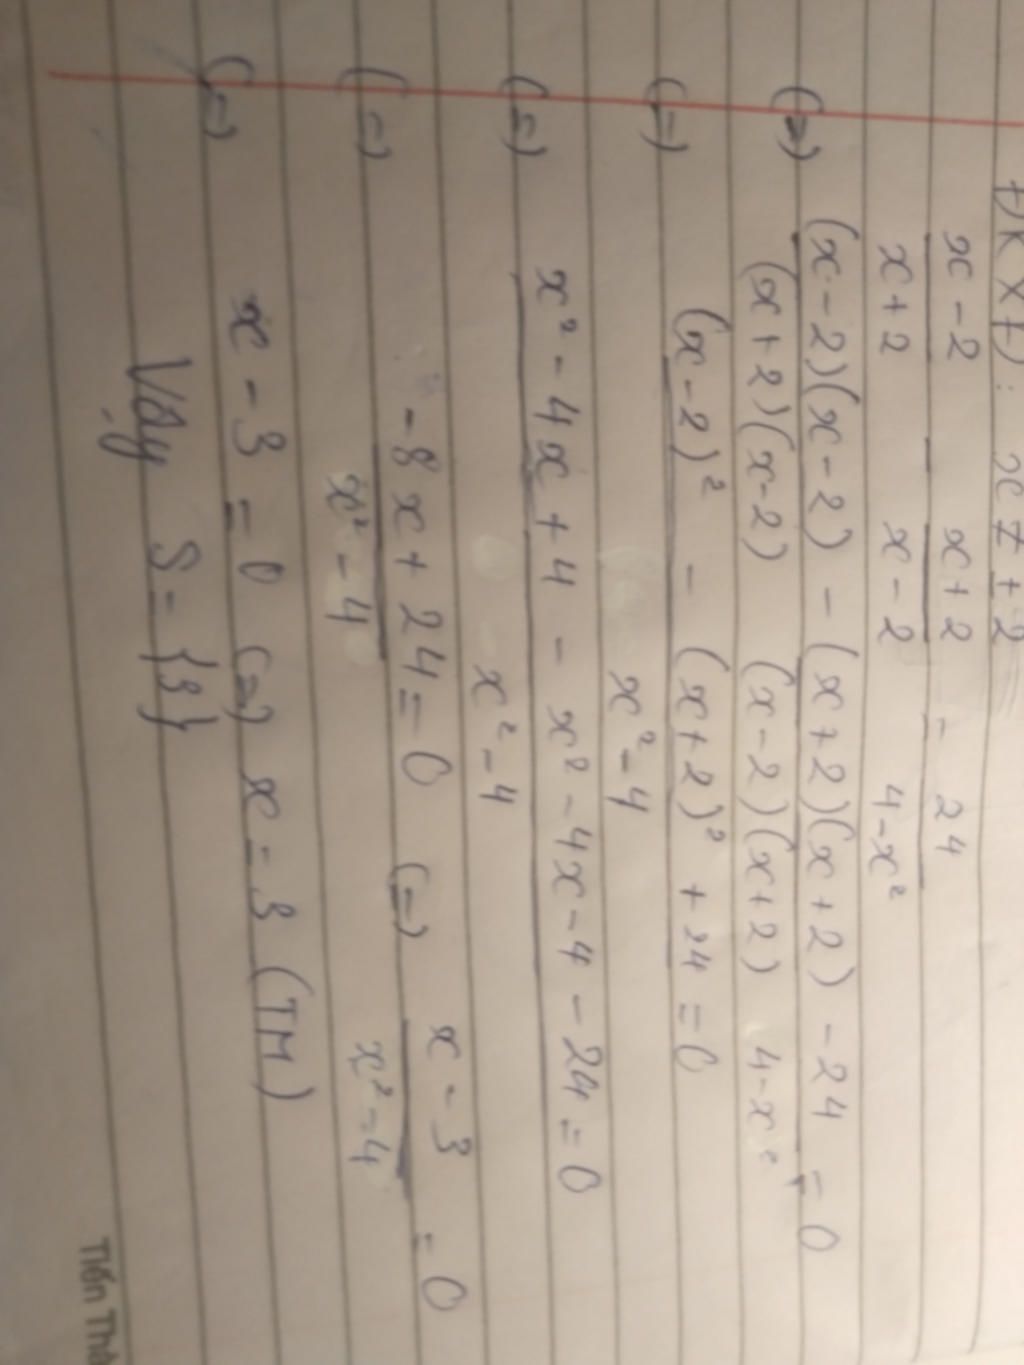 ĐKXĐ: x ≠ ±2
x - 2 / x + 2 - x + 2 / x - 2 = 24 / 4 - x²
(=) (x - 2)(x - 2) / (x + 2)(x - 2) - (x + 2)(x + 2) / (x - 2)(x + 2) - 24 / 4 - x² = 0
(=) (x - 2)² - (x + 2)² + 24 / x² - 4 = 0
(=) x² - 4x + 4 - x² - 4x - 4 - 24 / x² - 4 = 0
(=) -8x + 24 / x² - 4 = 0 (=) x - 3 / x² - 4 = 0
(=) x - 3 = 0 (=) x = 3 (TM)
Vậy S = {3}